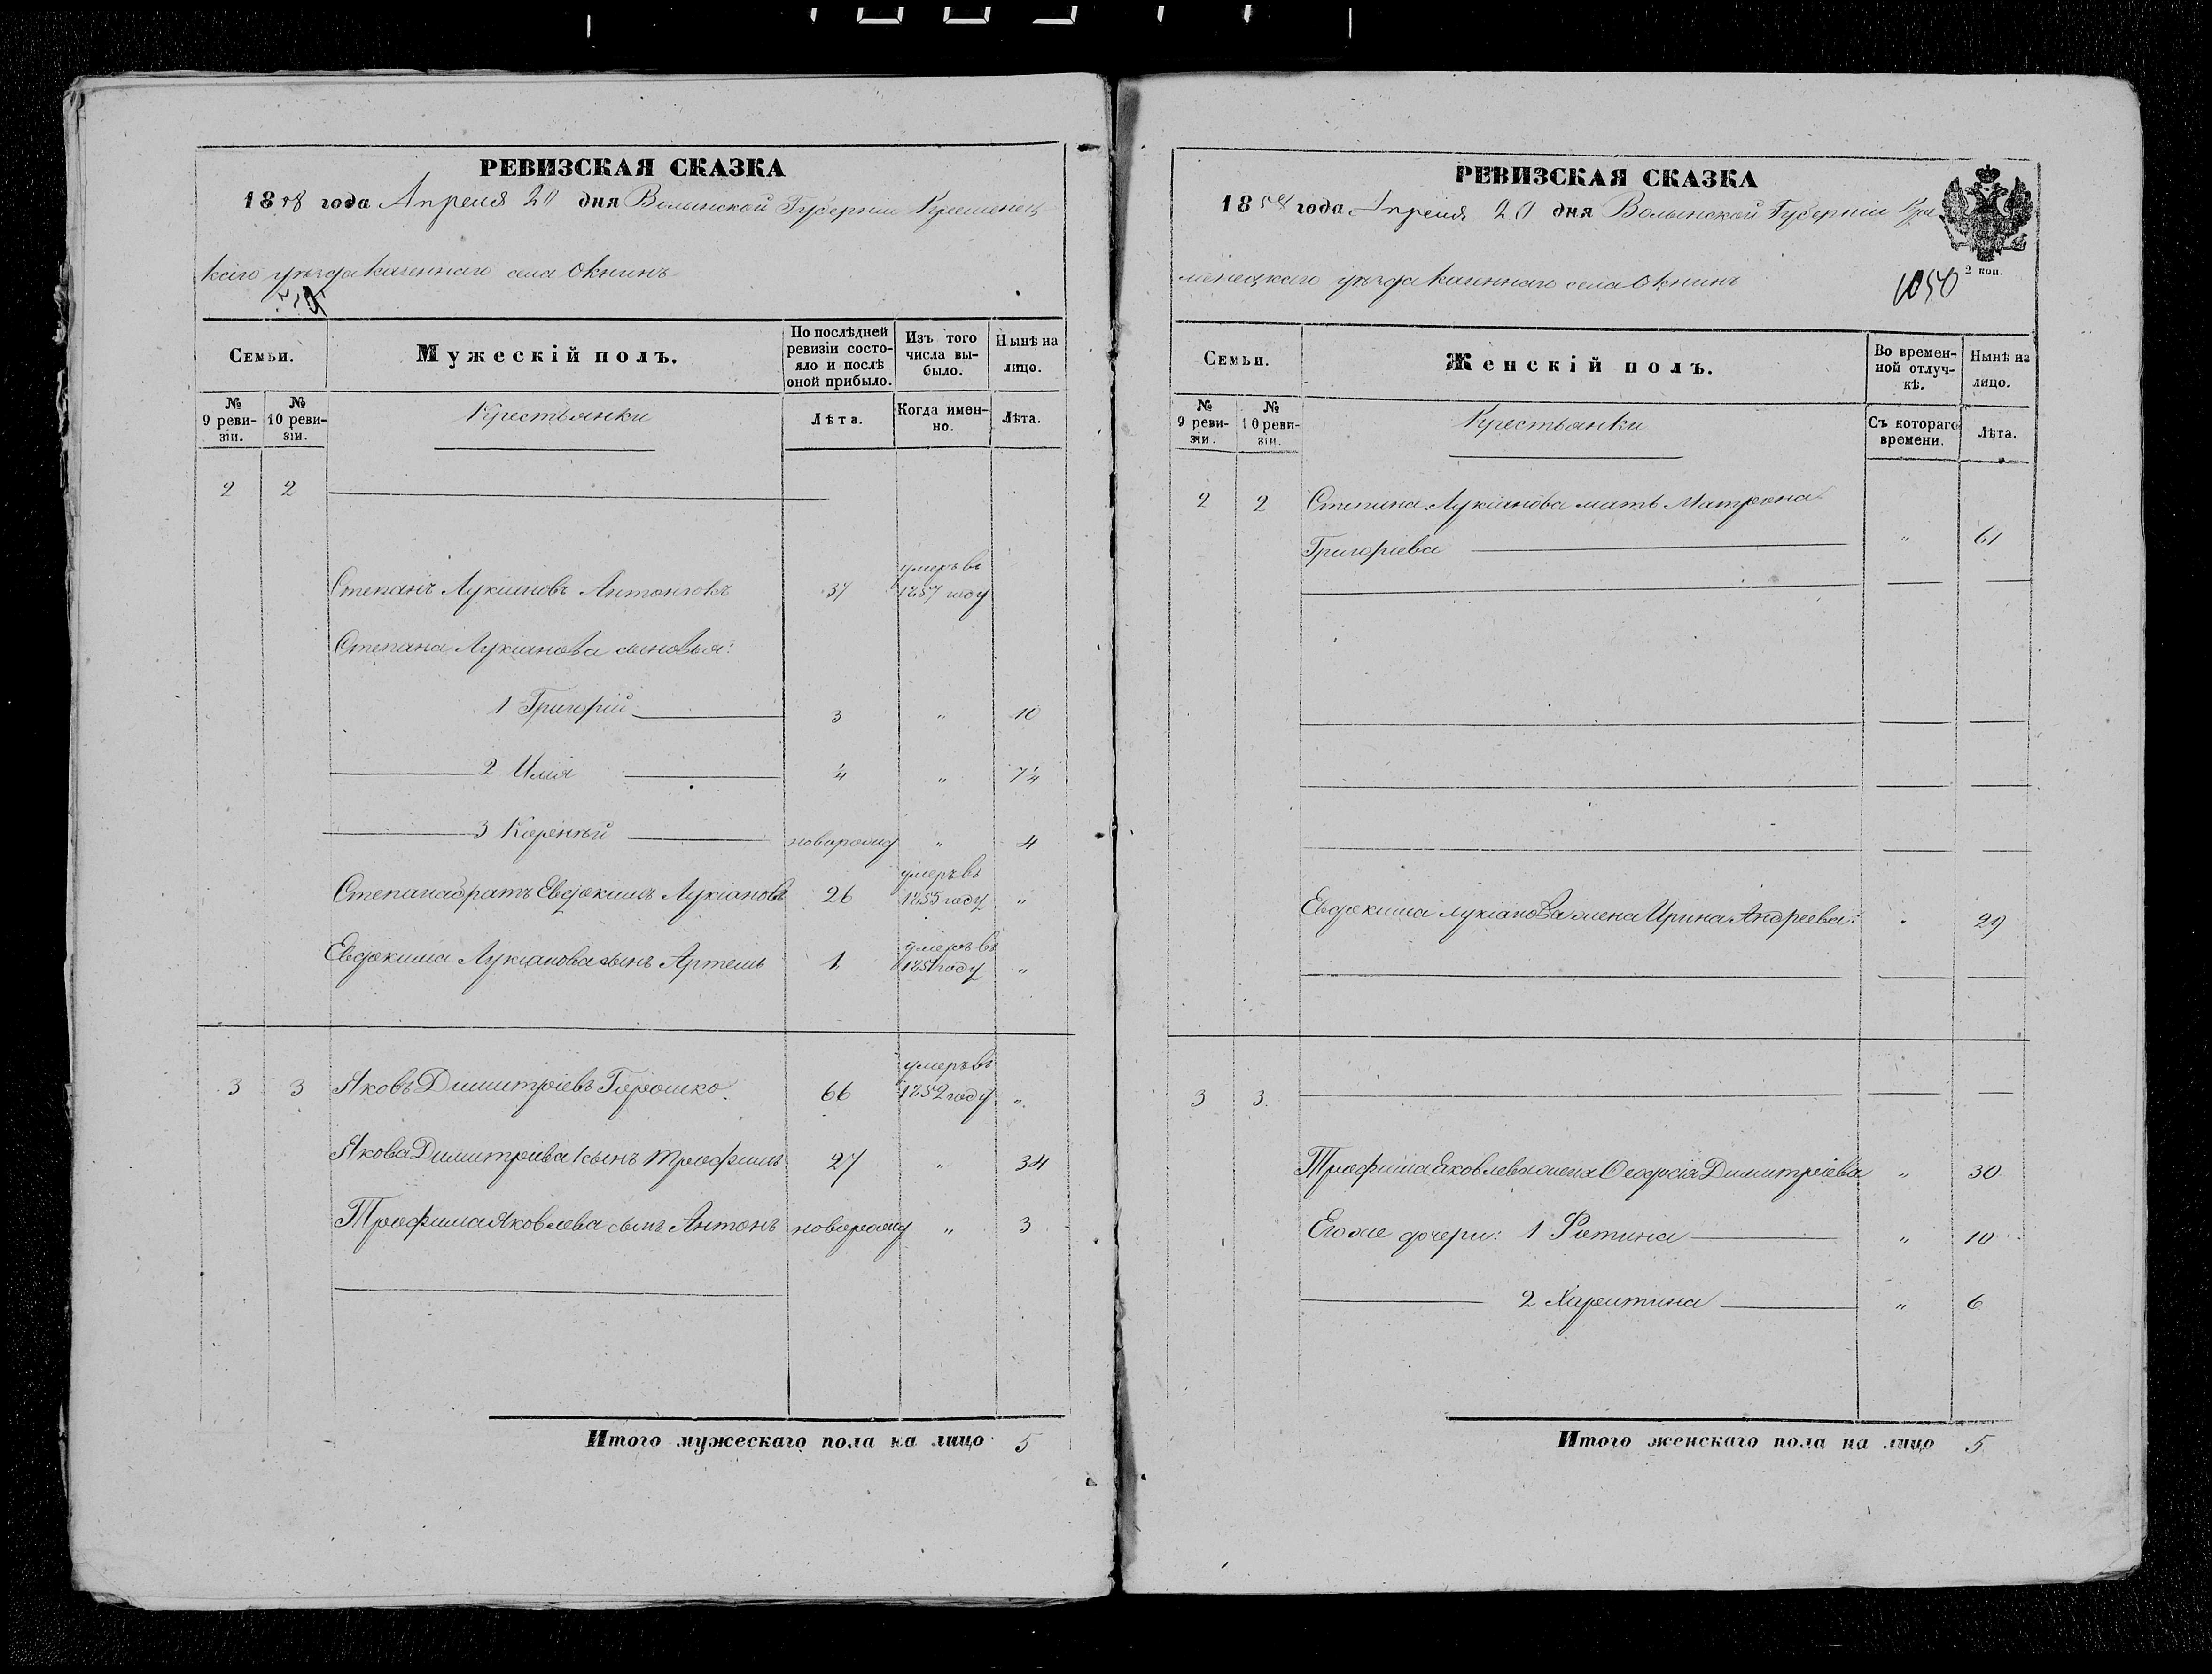 РЕВИЗСКАЯ СКАЗКА
1858 года Апреля 20 дня Волынской Губерніи Кременец
каго уѣзда казеннаго села Окнинъ
Семьи.
Мужескій полъ.
По послѣдней ревизіи состояло и послѣ оной прибыло.
Изъ того числа выбыло.
Нынѣ на лицо.
№ 9 ревизіи.
№ 10 ревизіи.
Крестьянки
Лѣта.
Когда именно.
Лѣта.
2 2
умеръ въ
Степанъ Лукіановъ 37 1857 году
Степана Лукіанова сыновья:
1 Григорій 3 " 10
2 Илія ¼ " 7¼
3 " 4
умеръ въ
Степана братъ Евдокимъ Лукіановъ 26 1855 году "
умеръ въ
Евдокима Лукіанова сынъ Артемъ 1 1851 году "
умеръ въ
3 3 Яковъ Димитріевъ Горошко 66 1852 году "
Якова Димитріева сынъ Трофимъ 27 " 34
Трофима Яковлева сынъ Антонъ новорожд " 3
Итого мужескаго пола на лицо 5
РЕВИЗСКАЯ СКАЗКА
1858 года Апреля 20 дня Волынской Губерніи Кре
менецкаго уѣзда казеннаго села Окнинъ
2 коп.
1050
Семьи.
Женскій полъ.
Во временной отлучкѣ.
Нынѣ на лицо.
№ 9 ревизіи.
№ 10 ревизіи.
Крестьянки
Съ котораго времени.
Лѣта.
2 2 Степана Лукіанова мать Матрона
Григоріева " 61
Евдокима Лукіанова жена Ирина Андреева " 29
3 3
Трофима Яковлева жена Феодосія Димитріева " 30
Его же дочери: 1 Фотина " 10
2 Харитина " 6
Итого женскаго пола на лицо 5